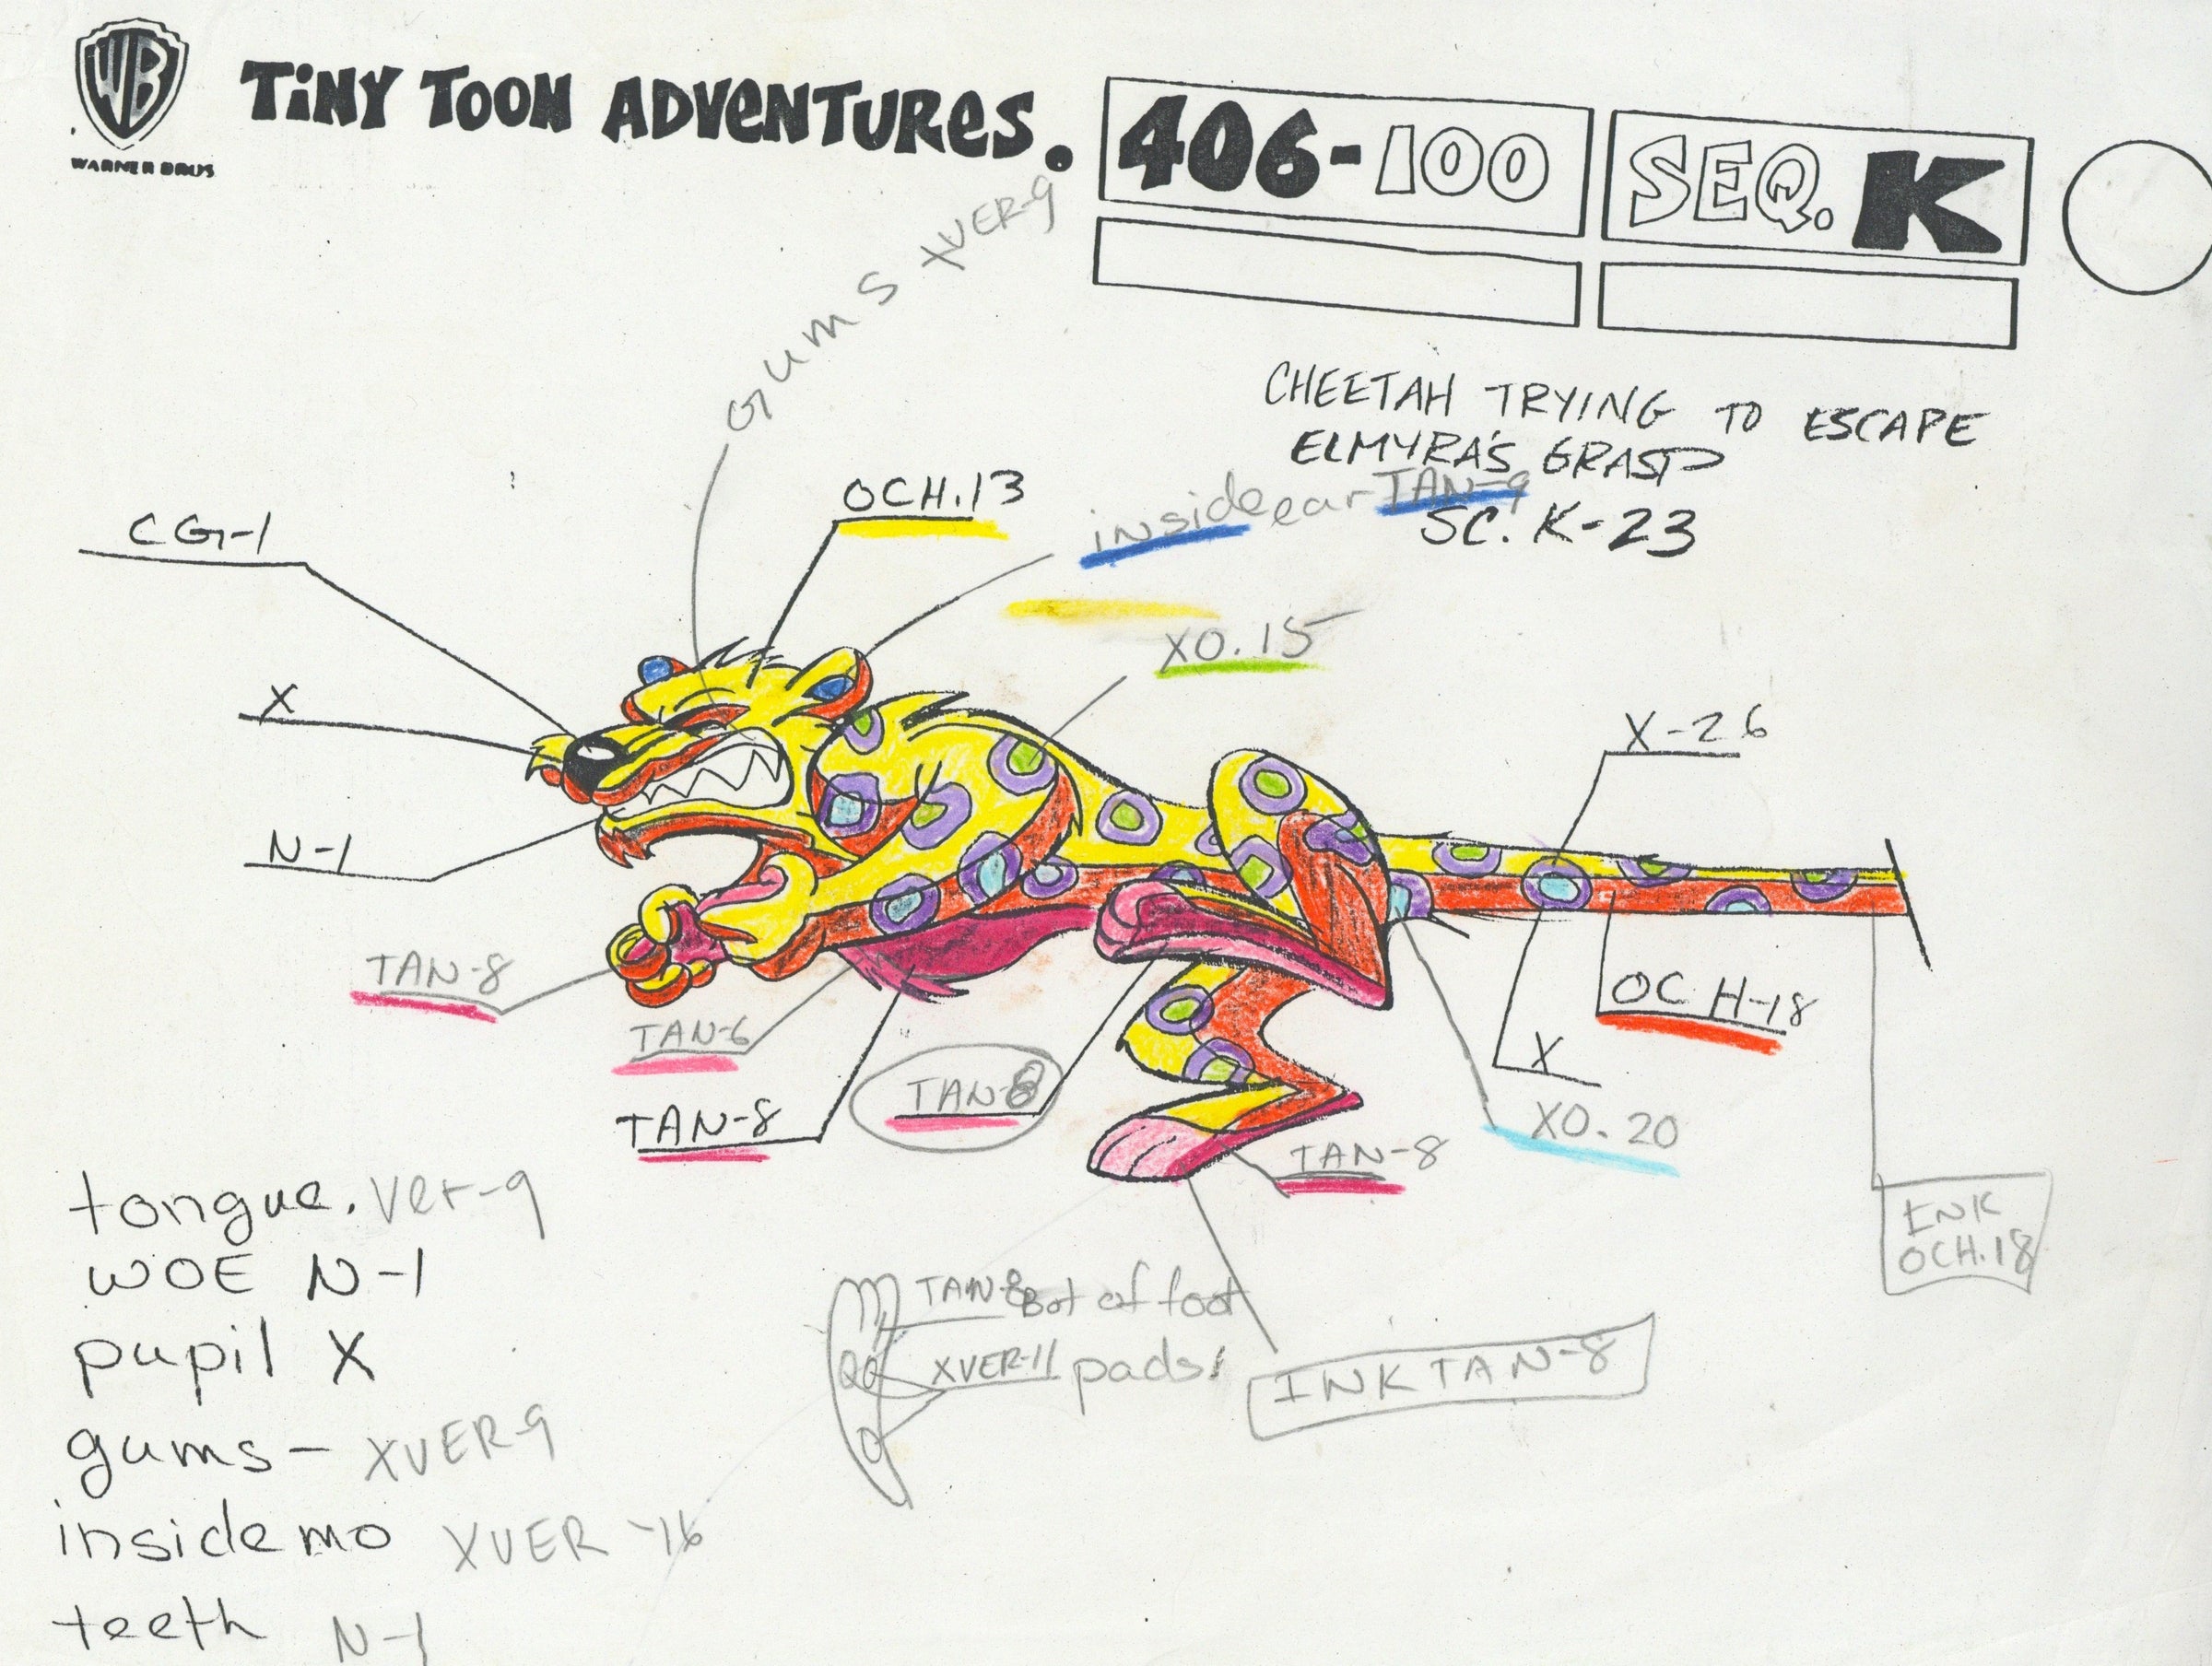 WB
WARNER BROS
TiNY TOON ADVENTURES.
406-100
SEQ. K
gums XVER-9
CHEETAH TRYING TO ESCAPE
ELMYRA'S GRASP
SC. K-23
OCH.13
inside ear TAN-9
CG-1
XO.15
X
X-26
N-1
TAN-8
OCH-18
TAN-6
X
TAN-8
TAN-8
XO.20
TAN-8
INK
OCH.18
tongue. Ver-9
WOE N-1
TAN-8 Bot of foot
pupil X
XVER-11 pads
INK TAN-8
gums - XVER-9
inside mo XVER-16
teeth N-1